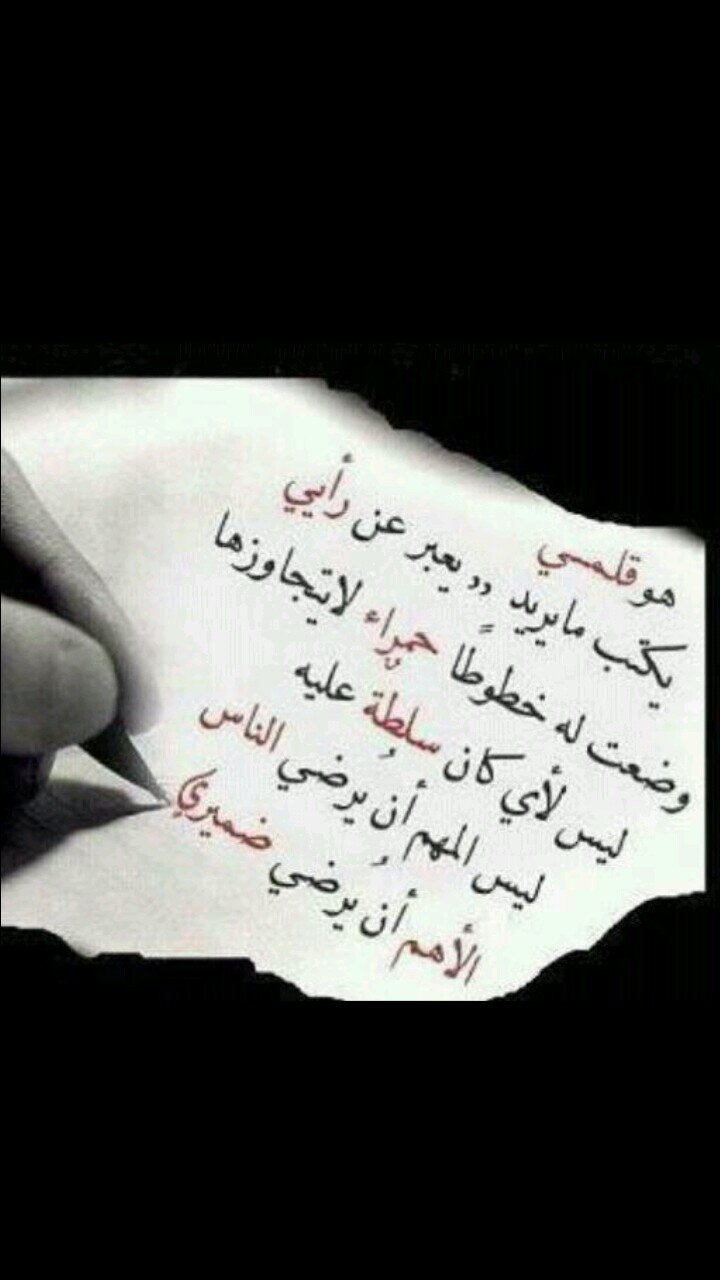 هو قلمي
يكتب مايريد ,, يعبر عن رأيي
وضعت له خطوطاً حمراء لايتجاوزها
ليس لأي كان سلطة عليه
ليس المهم أن يُرضي الناس
الأهم أن يُرضي ضميري